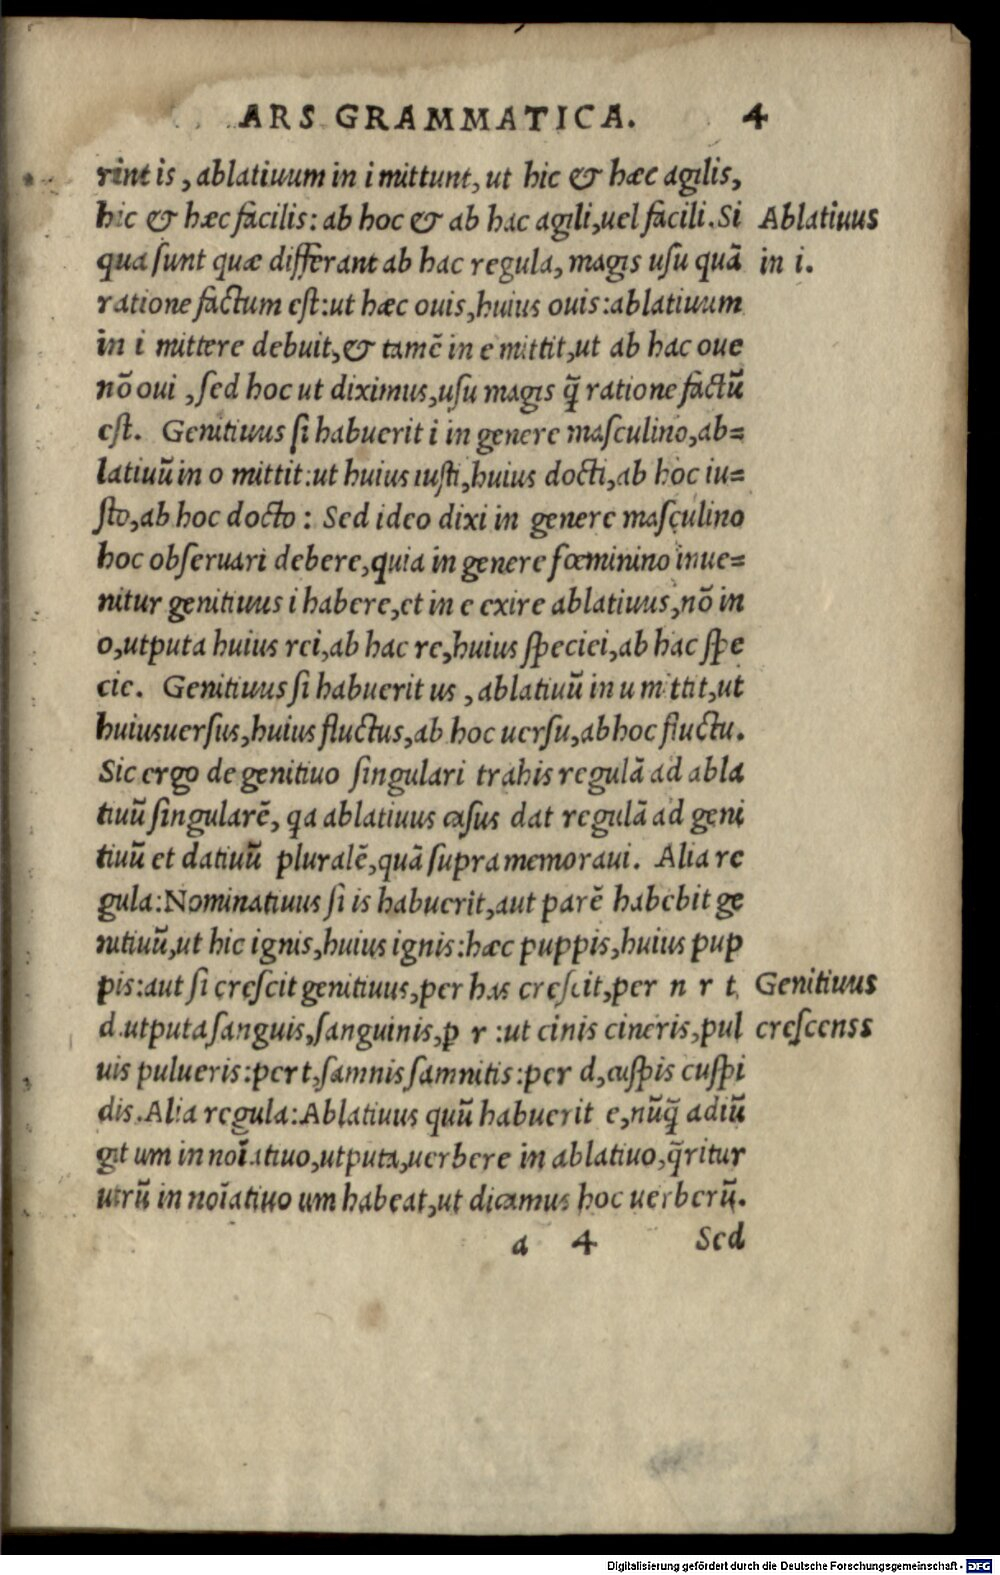 ARS GRAMMATICA. 4
rint is, ablatiuum in i mittunt, ut hic & hæc agilis,
hic & hæc facilis: ab hoc & ab hac agili, uel facili. Si
Ablatiuus
qua sunt quæ differant ab hac regula, magis usu quā
in i.
ratione factum est: ut hæc ouis, huius ouis: ablatiuum
in i mittere debuit, & tamē in e mittit, ut ab hac oue
nō oui, sed hoc ut diximus, usu magis q̄ ratione factū
est. Genitiuus si habuerit i in genere masculino, ab=
latiuū in o mittit: ut huius iusti, huius docti, ab hoc iu=
sto, ab hoc docto: Sed ideo dixi in genere masculino
hoc obseruari debere, quia in genere fœminino inue=
nitur genitiuus i habere, et in e exire ablatiuus, nō in
o, utputa huius rei, ab hac re, huius speciei, ab hac spe
cie. Genitiuus si habuerit us, ablatiuū in u mittit, ut
huius uersus, huius fluctus, ab hoc uersu, ab hoc fluctu.
Sic ergo de genitiuo singulari trahis regulā ad abla
tiuū singularē, qa ablatiuus casus dat regulā ad geni
tiuū et datiuū pluralē, quā supra memoraui. Alia re
gula: Nominatiuus si is habuerit, aut parē habebit ge
nitiuū, ut hic ignis, huius ignis: hæc puppis, huius pup
pis: aut si crescit genitiuus, per has crescit, per n r t
Genitiuus
d. utputa sanguis, sanguinis, p r: ut cinis cineris, pul
crescenss
uis pulueris: per t, samnis samnitis: per d, cuspis cuspi
dis. Alia regula: Ablatiuus quū habuerit e, nūq̄ adiū
git um in noīatiuo, utputa, uerbere in ablatiuo, q̄ritur
utrū in noīatiuo um habeat, ut dicamus hoc uerberū.
a 4 Sed
Digitalisierung gefördert durch die Deutsche Forschungsgemeinschaft - DFG